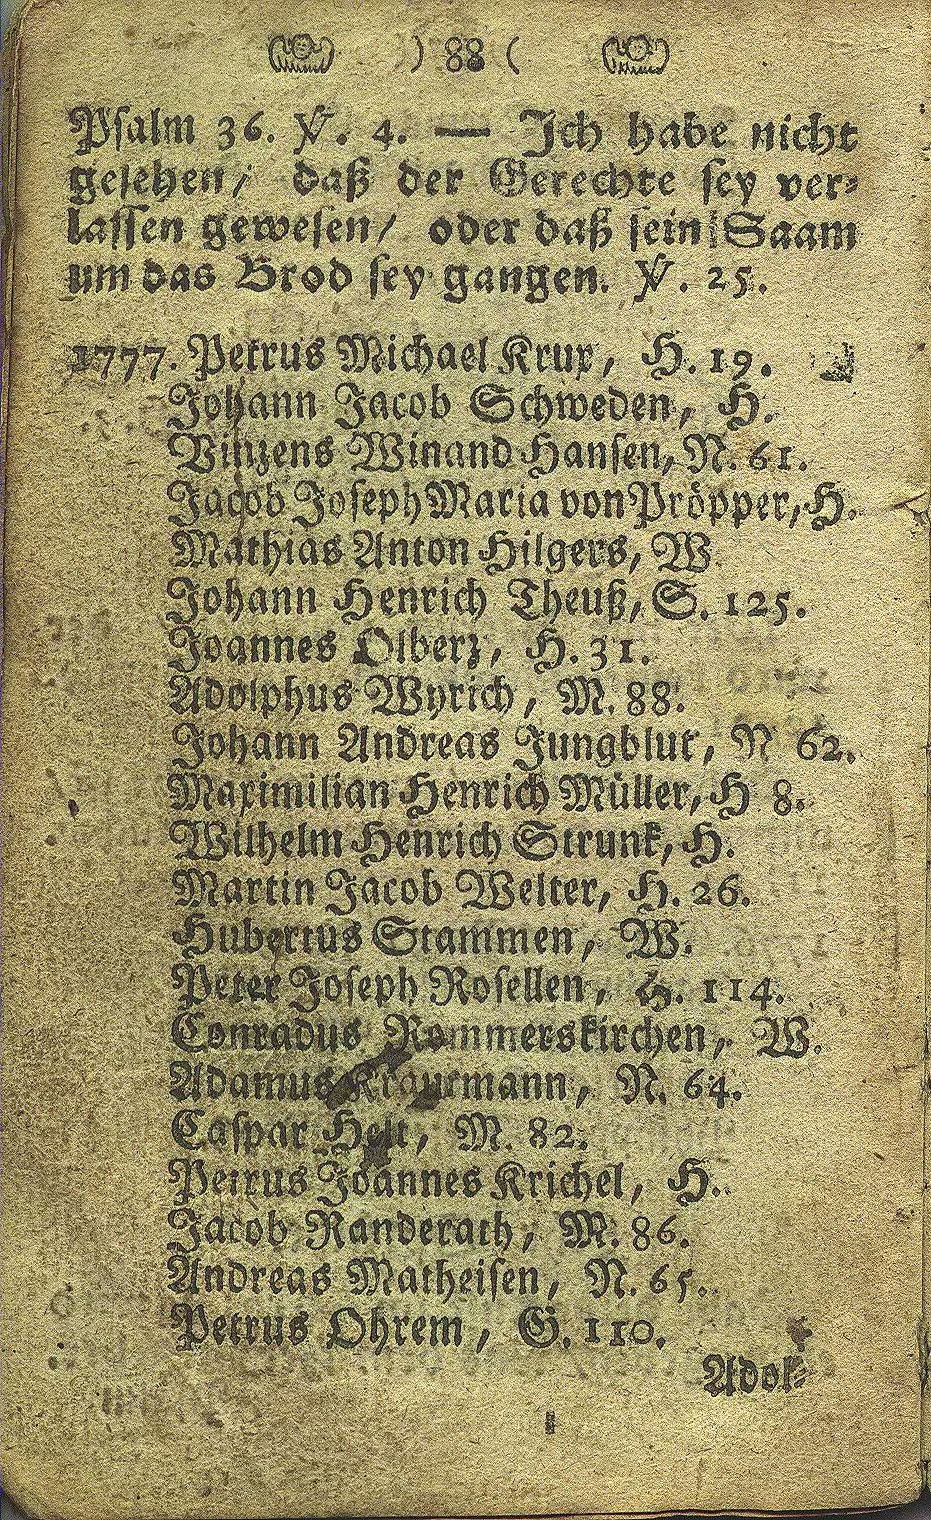 ) 88 (
Psalm 36. ℣. 4. — Ich habe nicht
gesehen/ daß der Gerechte sey ver-
lassen gewesen/ oder daß sein Saam
um das Brod sey gangen. ℣. 25.
1777. Petrus Michael Krux, H. 19.
Johann Jacob Schweden, H.
Vinzens Winand Hansen, N. 61.
Jacob Joseph Maria von Pröpper, H.
Mathias Anton Hilgers, W.
Johann Henrich Theuß, S. 125.
Joannes Olberz, H. 31.
Adolphus Wyrich, M. 88.
Johann Andreas Jungblut, N 62.
Maximilian Henrich Müller, H 8.
Wilhelm Henrich Strunk, H.
Martin Jacob Welter, H. 26.
Hubertus Stammen, W.
Peter Joseph Rosellen, H. 114.
Conradus Rommerskirchen, W.
Adamus Krautmann, N. 64.
Caspar Helt, M. 82.
Petrus Joannes Krichel, H.
Jacob Randerath, M. 86.
Andreas Matheisen, N. 65.
Petrus Ohrem, G. 110.
Adol-